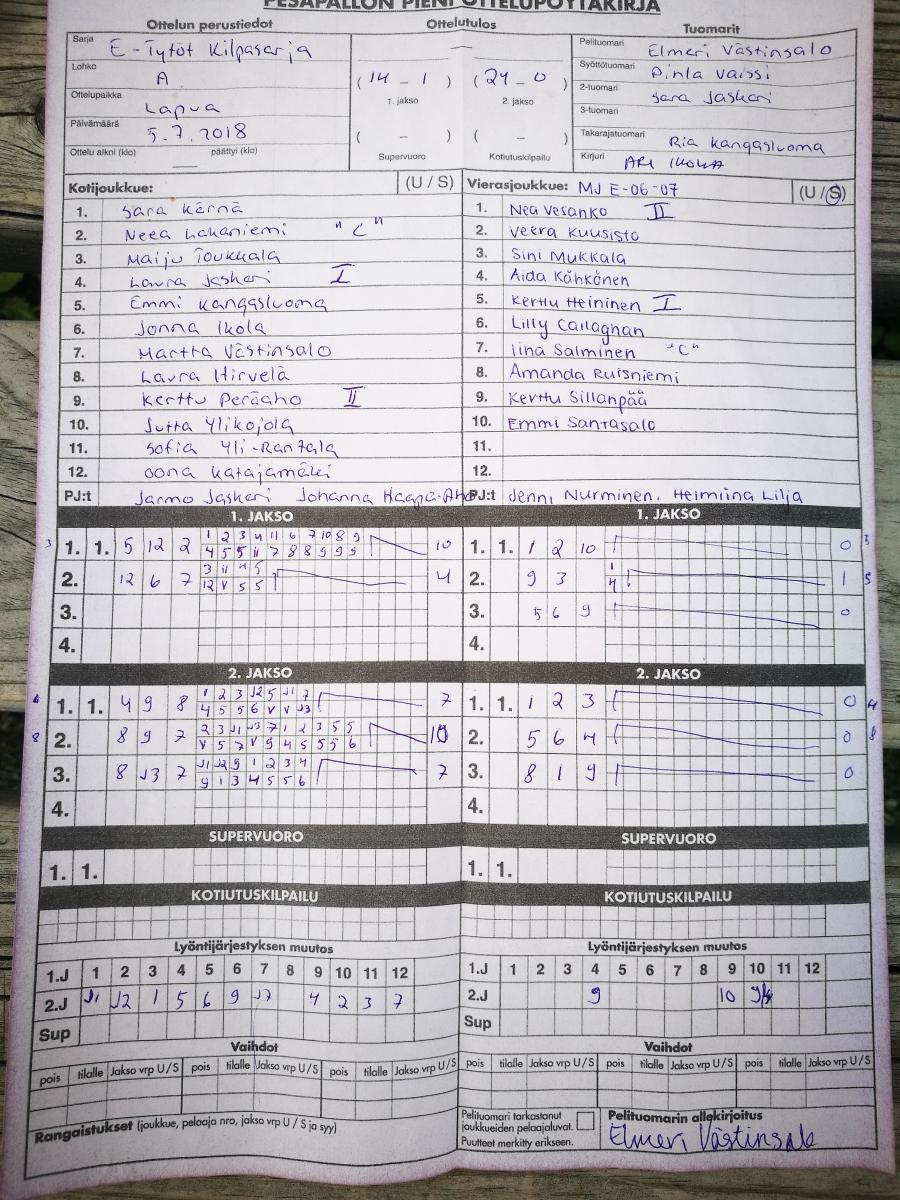 PESÄPALLON PIENI OTTELUPÖYTÄKIRJA
Ottelun perustiedot Ottelutulos Tuomarit
Sarja E-Tytöt Kilpasarja
Lohko A
Ottelupaikka Lapua
Päivämäärä 5.7.2018
Ottelu alkoi (klo) — päättyi (klo)
—
(14 - 1) (24 - 0)
1. jakso 2. jakso
( - ) ( - )
Supervuoro Kotiutuskilpailu
Pelituomari Elmeri Västinsalo
Syöttötuomari
2-tuomari Sara Jaskari
3-tuomari
Takarajatuomari Ria Kangasluoma
Kirjuri ARI IKOLA
Kotijoukkue: (U / S)
1. Sara Kärnä
2. Neea Lahaniemi "C"
3. Maiju Toukkala
4. Laura Jaskari I
5. Emmi Kangasluoma
6. Jonna Ikola
7. Martta Västinsalo
8. Laura Hirvelä
9. Kerttu Peräaho II
10. Jutta Ylikojola
11. Sofia Yli-Rantala
12. Oona Katajamäki
PJ:t Jarmo Jaskari Johanna Haapa-Aho
Vierasjoukkue: MJ E-06-07 (U / S)
1. Nea Vesanko II
2. Veera Kuusisto
3. Sini Mukkala
4. Aida Kähkönen
5. Kerttu Heininen I
6. Lilly Callaghan
7. Iina Salminen "C"
8. Amanda Ruisniemi
9. Kerttu Sillanpää
10. Emmi Santasalo
11.
12.
PJ:t Jenni Nurminen, Heimiina Lilja
1. JAKSO
3 1. 1. 5 12 2 1 2 3 4 11 6 7 10 8 9 10
4 5 5 11 7 8 8 9 9 9
2. 12 6 7 3 11 4 5 4
12 V 5 5
3.
4.
1. JAKSO
1. 1. 1 2 10 0 3
2. 9 3 1 1 5
4
3. 5 6 9 0
4.
2. JAKSO
6 1. 1. 4 9 8 1 2 3 12 5 11 7 7
4 5 5 6 V V 13
8 2. 8 9 7 2 3 11 13 7 1 2 3 5 5 10
V 5 7 V 9 4 5 5 5 6
3. 8 13 7 11 12 9 1 2 3 4 7
9 1 3 4 5 5 6
4.
2. JAKSO
1. 1. 1 2 3 0 4
2. 5 6 4 0 8
3. 8 1 9 0
4.
SUPERVUORO SUPERVUORO
1. 1. 1. 1.
KOTIUTUSKILPAILU KOTIUTUSKILPAILU
Lyöntijärjestyksen muutos
1.J 1 2 3 4 5 6 7 8 9 10 11 12
2.J 11 12 1 5 6 9 13 4 2 3 7
Sup
Lyöntijärjestyksen muutos
1.J 1 2 3 4 5 6 7 8 9 10 11 12
2.J 9 10
Sup
Vaihdot Vaihdot
pois tilalle Jakso vrp U/S pois tilalle Jakso vrp U/S pois tilalle Jakso vrp U/S
pois tilalle Jakso vrp U/S pois tilalle Jakso vrp U/S pois tilalle Jakso vrp U/S
Rangaistukset (joukkue, pelaaja nro, jakso vrp U / S ja syy)
Pelituomari tarkastanut
joukkueiden pelaajaluvat.
Puutteet merkitty erikseen.
Pelituomarin allekirjoitus
Elmeri Västinsalo